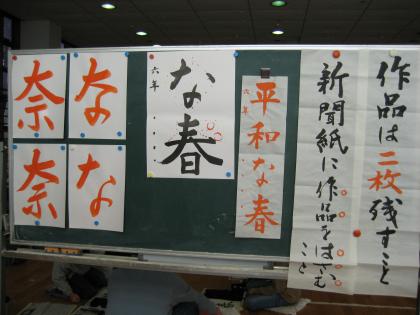 作品は二枚残すこと
新聞紙に作品をはさむこと
平和な春
六年
な春
六年
な
な
奈
奈